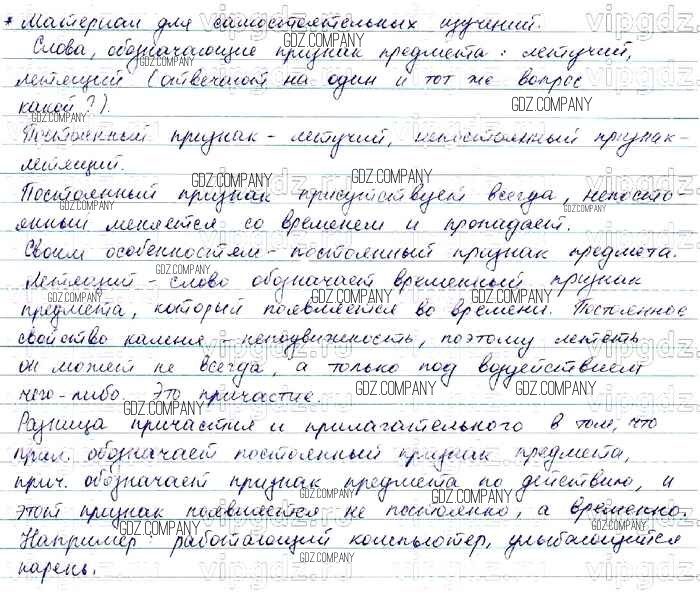 * Материал для самостоятельных изучений.
Слова, обозначающие признак предмета: летучий,
летящий (отвечают на один и тот же вопрос
какой?).
Постоянный признак - летучий, непостоянный признак-
летящий.
Постоянный признак присутствует всегда, непосто-
янный меняется со временем и пропадает.
Своим особенностям - постоянный признак предмета.
Летящий - слово обозначает временный признак
предмета, который появляется во времени. Постоянное
свойство камня - неподвижность, поэтому лететь
он может не всегда, а только под воздействием
чего-либо. Это причастие.
Разница причастия и прилагательного в том, что
прил. обозначает постоянный признак предмета,
прич. обозначает признак предмета по действию, и
этот признак появляется не постоянно, а временно.
Например: работающий компьютер, улыбающийся
парень.